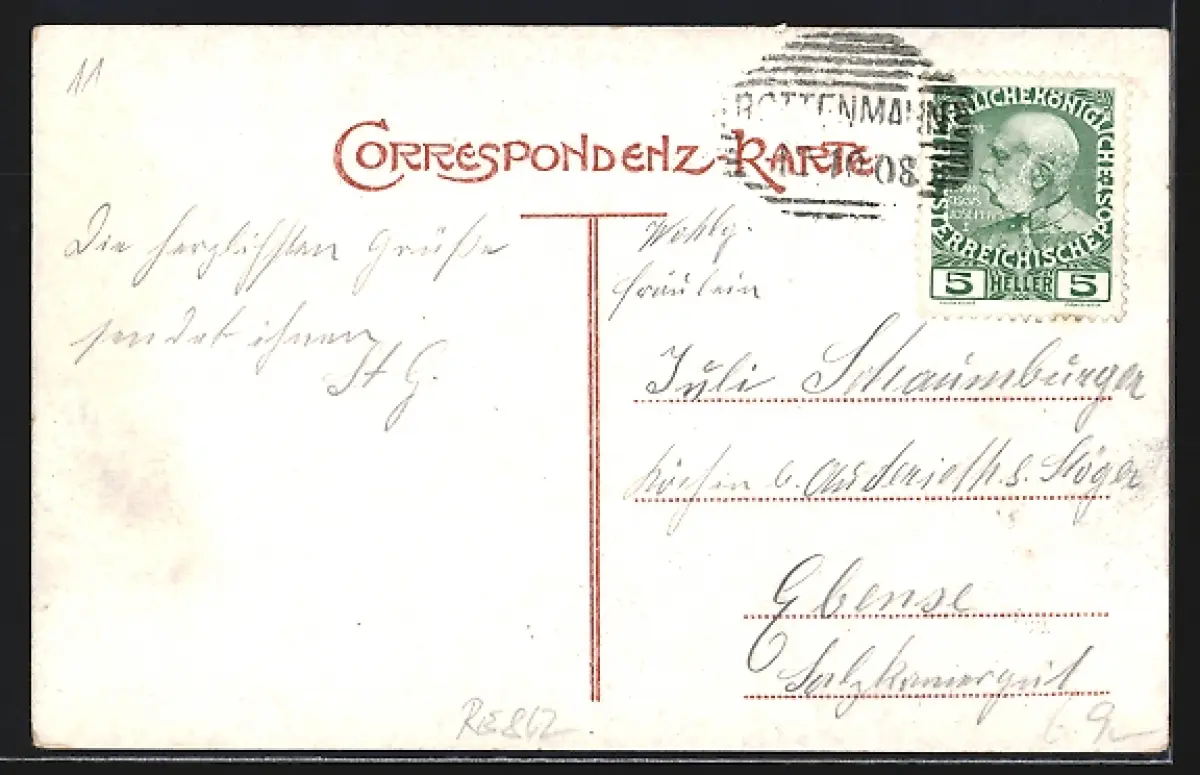 11
CORRESPONDENZ-KARTE
ROTTENMANN
10 08
KAISERLICHE KÖNIGLICHE ÖSTERREICHISCHE POST
5 HELLER 5
Die herzlichsten Grüße
sendet ihnen
St G.
Wohlg.
Fräulein
Juli Schaumburger
Köchin b. Stöger
Ebense
Salzkamergut
RE862